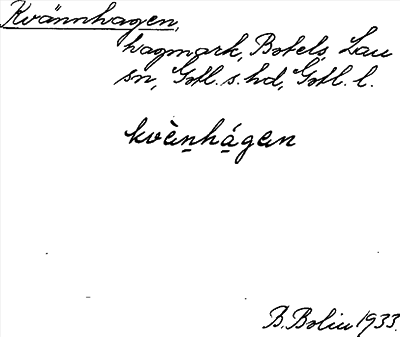 Kvännhagen,
hagmark, Botels, Lau
sn, Gotl. s. hd, Gotl. l.
kvèn̠há̠gen
B. Bolin 1933.